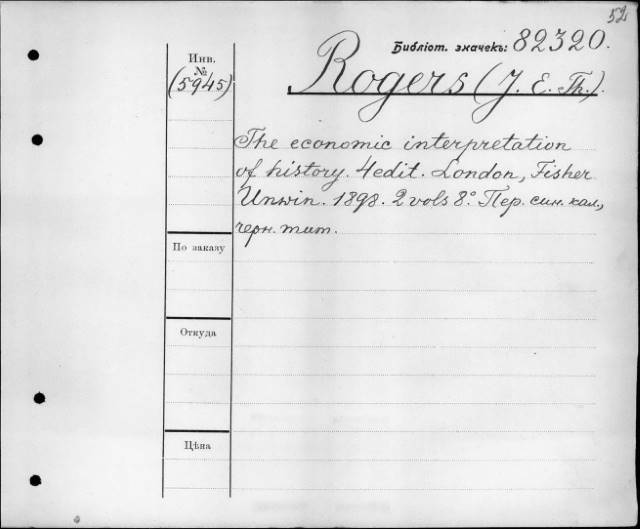 52
Библіот. значекъ: 82320.
Инв.
№
(5945)
Rogers (J. E. Th.).
The economic interpretation
of history. 4 edit. London, Fisher
Unwin. 1898. 2 vols 8.° Пер. син. кал.,
черн. тит.
По заказу
Откуда
Цѣна